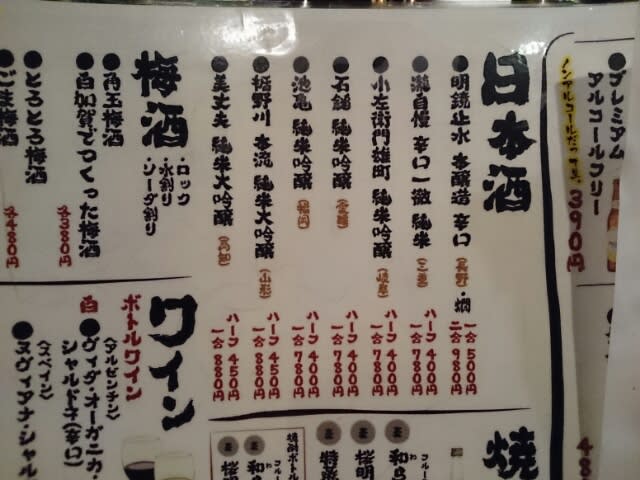 プレミアム
アルコールフリー
390円
日本酒
●明鏡止水 本醸造 辛口(長野)・燗
一合 500円
二合 980円
●瀧自慢 辛口一徹 純米(三重)
ハーフ 400円
一合 780円
●小左衛門雄町 純米吟醸(岐阜)
ハーフ 400円
一合 780円
●石鎚 純米吟醸(愛媛)
ハーフ 400円
一合 780円
●池亀 純米吟醸(福岡)
ハーフ 400円
一合 780円
●楯野川 本流 純米大吟醸(山形)
ハーフ 450円
一合 880円
●美丈夫 純米大吟醸(高知)
ハーフ 450円
一合 880円
梅酒
・ロック
・水割り
・ソーダ割り
●角玉梅酒
●白加賀でつくった梅酒
各380円
●とろとろ梅酒
●ごま梅酒
各480円
ワイン
ボトルワイン
白
〈アルゼンチン〉
●ヴィダ・オーガニカ・
シャルドネ(辛口)
〈スペイン〉
●ヌヴィアナ・シャル
焼
焼酎ボトル